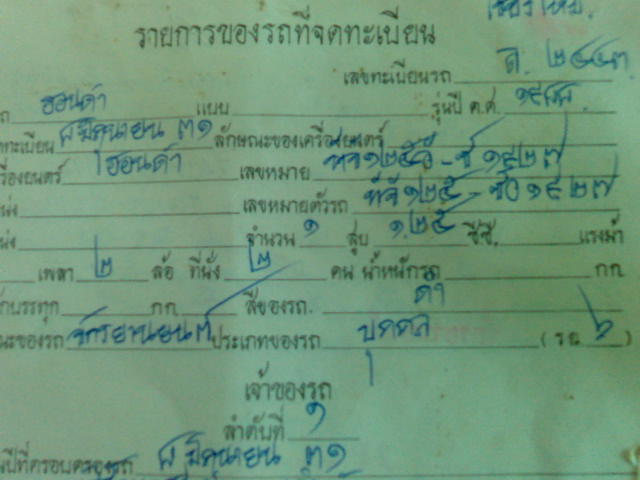 เชียงใหม่.
รายการของรถที่จดทะเบียน
เลขทะเบียนรถ ล. ๒๔๔๓
ฮอนด้า แบบ รุ่นปี ค.ศ. ๑๙
ทะเบียน มิถุนายน ๓๑ ลักษณะของเครื่องยนตร์
รื่องยนตร์ ฮอนด้า เลขหมาย
เลขหมายตัวรถ
จำนวน ๑ สูบ ๑๒๕ ซีซี. แรงม้า
เพลา ๒ ล้อ ที่นั่ง ๒ คน น้ำหนักรถ กก
กบรรทุก กก สีของรถ. ดำ
ณะของรถ จักรยานยนต์ ประเภทของรถ บุคคล (รย ๖ )
เจ้าของรถ
ลำดับที่ ๑
ปีที่ครอบครองรถ มิถุนายน ๓๑